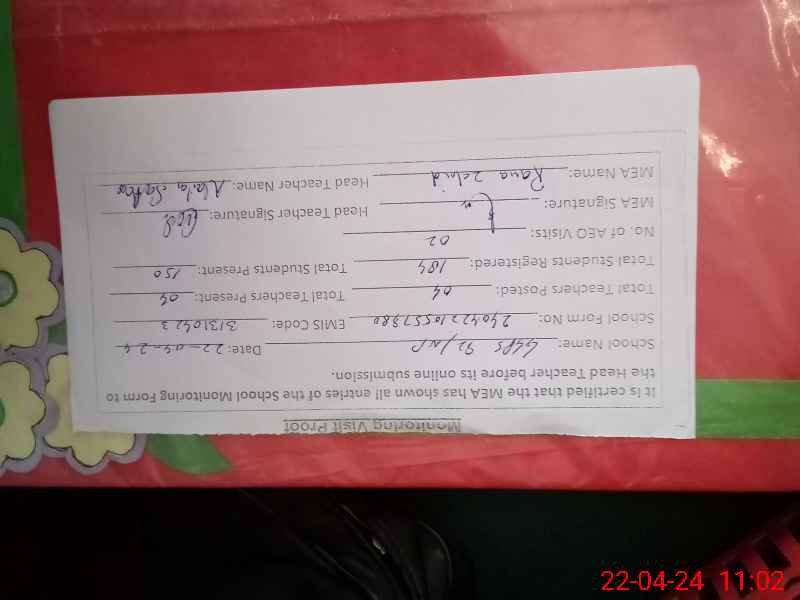 Monitoring Visit Proof
It is certified that the MEA has shown all entries of the School Monitoring Form to
the Head Teacher before its online submission.
School Name: GGPS 92/NP Date: 22-04-24
School Form No: 24042210557380 EMIS Code: 31310423
Total Teachers Posted: 04 Total Teachers Present: 04
Total Students Registered: 184 Total Students Present: 150
No. of AEO Visits: 02
MEA Signature: Head Teacher Signature:
MEA Name: Rana Zahid Head Teacher Name: Naila
22-04-24 11:02